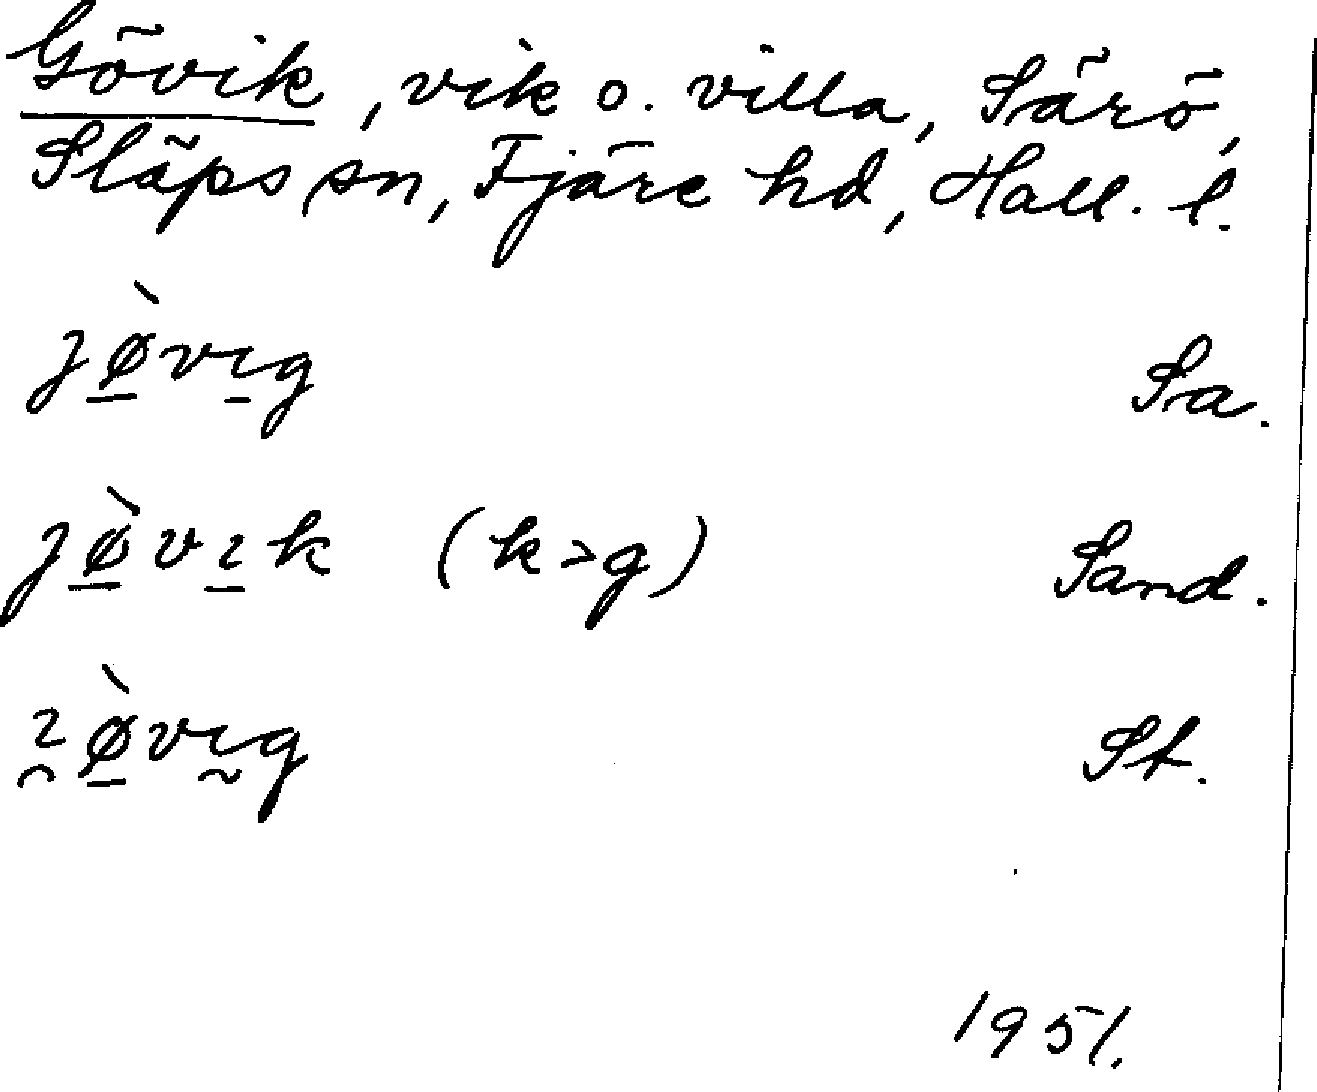 Gövik, vik o. villa, Särö,
Släps sn, Fjäre hd, Hall. l.
jø̠̀vı̠g Sa.
jø̠̀vı̠k (k>g) Sand.
ı̯ø̠̀vı̰g St.
1951.